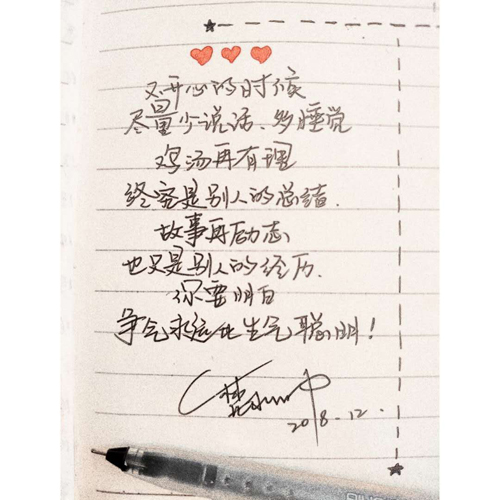 不开心的时候
尽量少说话、多睡觉
鸡汤再有理
终究是别人的总结.
故事再励志
也只是别人的经历.
你要明白
争气永远比生气聪明！
2018.12.